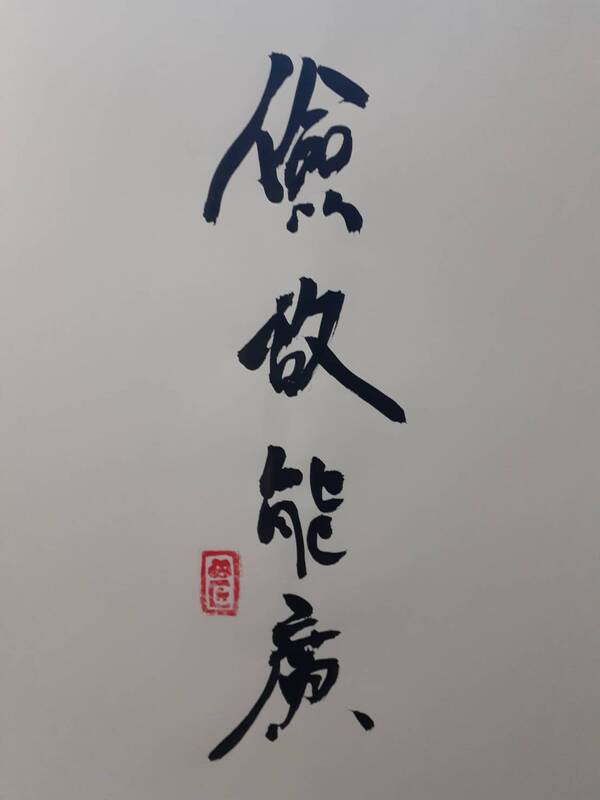 儉故能廣